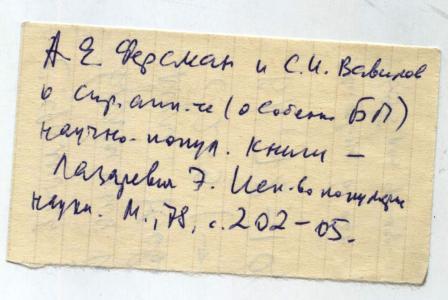 А Е Ферсман и С.И. Вавилов
о спр. апп-те (особенно БП)
научно-попул. книги –
Лазаревич Э. Иск-во популяриз
науки. М., 78, с. 202–05.